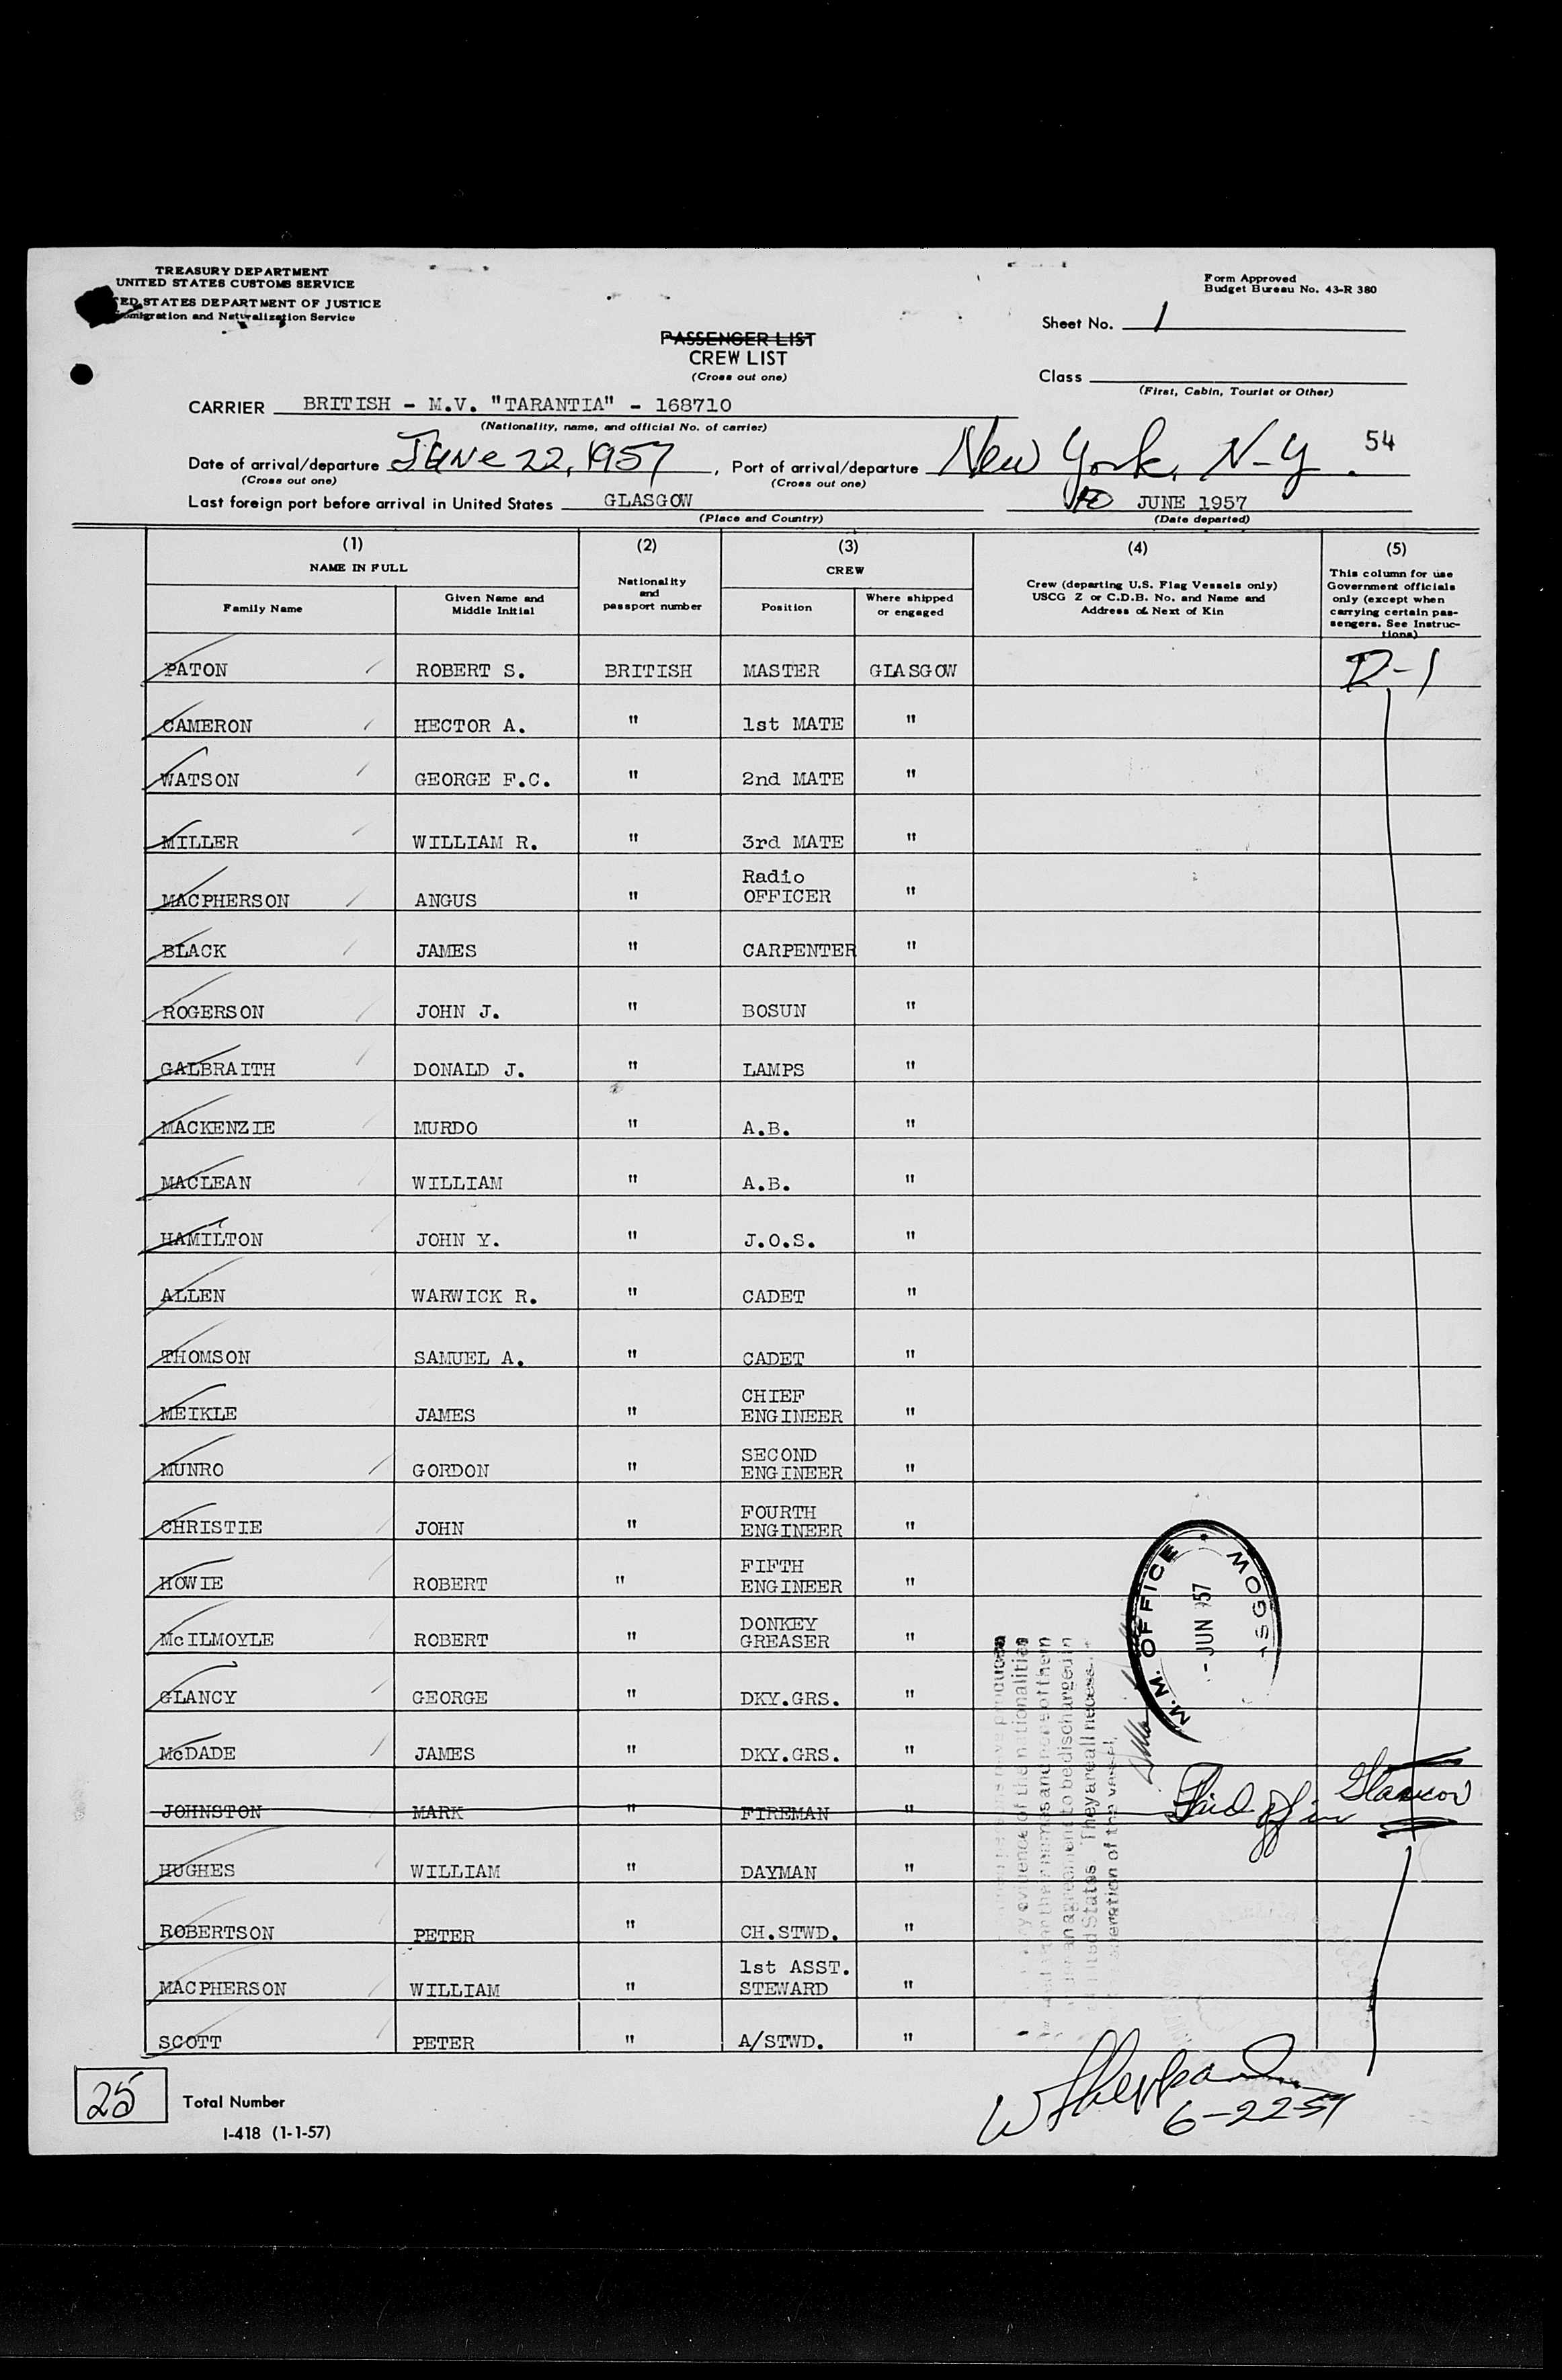 TREASURY DEPARTMENT
UNITED STATES CUSTOMS SERVICE
TED STATES DEPARTMENT OF JUSTICE
Immigration and Naturalization Service
Form Approved
Budget Bureau No. 43-R 380
Sheet No. 1
PASSENGER LIST
CREW LIST
(Cross out one)
Class
(First, Cabin, Tourist or Other)
CARRIER BRITISH - M.V. "TARANTIA" - 168710
(Nationality, name, and official No. of carrier)
54
Date of arrival/departure June 22, 1957, Port of arrival/departure New York, N-Y.
(Cross out one) (Cross out one)
Last foreign port before arrival in United States GLASGOW 10 JUNE 1957
(Place and Country) (Date departed)
(1) (2) (3) (4) (5)
NAME IN FULL Nationality and passport number CREW Crew (departing U.S. Flag Vessels only) USCG Z or C.D.B. No. and Name and Address of Next of Kin This column for use Government officials only (except when carrying certain passengers. See Instructions)
Family Name Given Name and Middle Initial Position Where shipped or engaged
PATON ROBERT S. BRITISH MASTER GLASGOW D-1
CAMERON HECTOR A. " 1st MATE "
WATSON GEORGE F.C. " 2nd MATE "
MILLER WILLIAM R. " 3rd MATE "
MACPHERSON ANGUS " Radio OFFICER "
BLACK JAMES " CARPENTER "
ROGERSON JOHN J. " BOSUN "
GALBRAITH DONALD J. " LAMPS "
MACKENZIE MURDO " A.B. "
MACLEAN WILLIAM " A.B. "
HAMILTON JOHN Y. " J.O.S. "
ALLEN WARWICK R. " CADET "
THOMSON SAMUEL A. " CADET "
MEIKLE JAMES " CHIEF ENGINEER "
MUNRO GORDON " SECOND ENGINEER "
CHRISTIE JOHN " FOURTH ENGINEER "
HOWIE ROBERT " FIFTH ENGINEER "
McILMOYLE ROBERT " DONKEY GREASER "
GLANCY GEORGE " DKY.GRS. "
McDADE JAMES " DKY.GRS. "
JOHNSTON MARK " FIREMAN " Paid off in Glascow
HUGHES WILLIAM " DAYMAN "
ROBERTSON PETER " CH.STWD. "
MACPHERSON WILLIAM " 1st ASST. STEWARD "
SCOTT PETER " A/STWD. "
M.M. OFFICE
- JUN 57
evidence of the nationalities
an agreement to be discharged in
States. They are all necess
operation of the vessel.
25 Total Number
6-22-57
I-418 (1-1-57)